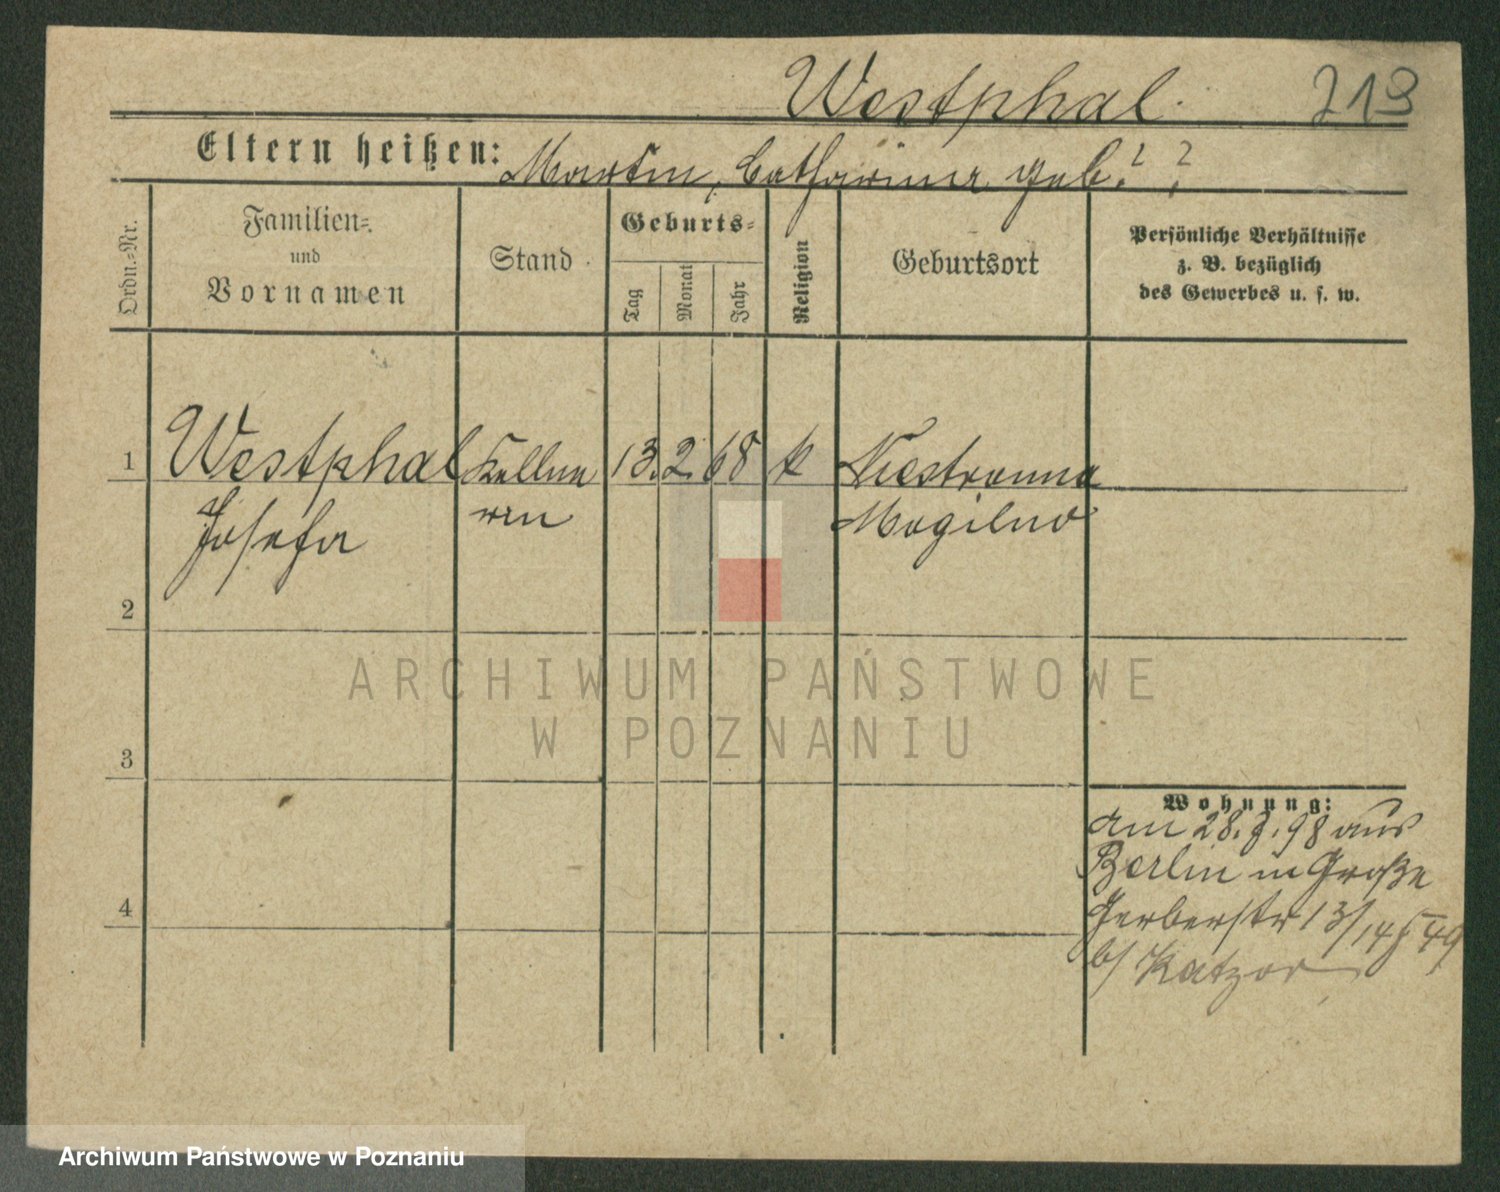 Westphal. 213
Eltern heißen: Martin, Catharina geb. ? ?
Ordn.-Nr.
Familien-
und
Vornamen
Stand
Geburts-
Tag
Monat
Jahr
Religion
Geburtsort
Persönliche Verhältnisse
z. B. bezüglich
des Gewerbes u. s. w.
1 Westphal Kellne 13. 2. 68 k Niestronna
Josefa rin Mogilno
2
ARCHIWUM PAŃSTWOWE
W POZNANIU
3
Wohnung:
am 28. 98 aus
Berlin in Große
4
Gerberstr 13/14
b/ Katzor
Archiwum Państwowe w Poznaniu